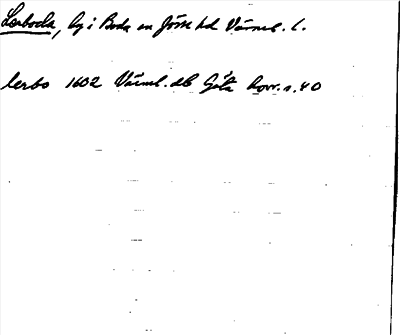 Lerboda, by i Boda sn Jösse hd Värml. l.
lerbo 1602 Värml. db Göta hovr. s. 40